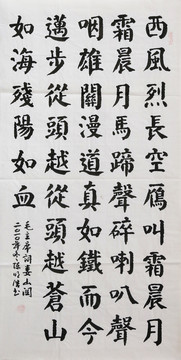 西風烈長空雁叫霜晨月
霜晨月馬蹄聲碎喇叭聲
咽雄關漫道真如鐵而今
邁步從頭越從頭越蒼山
如海殘陽如血
毛主席詞婁山關